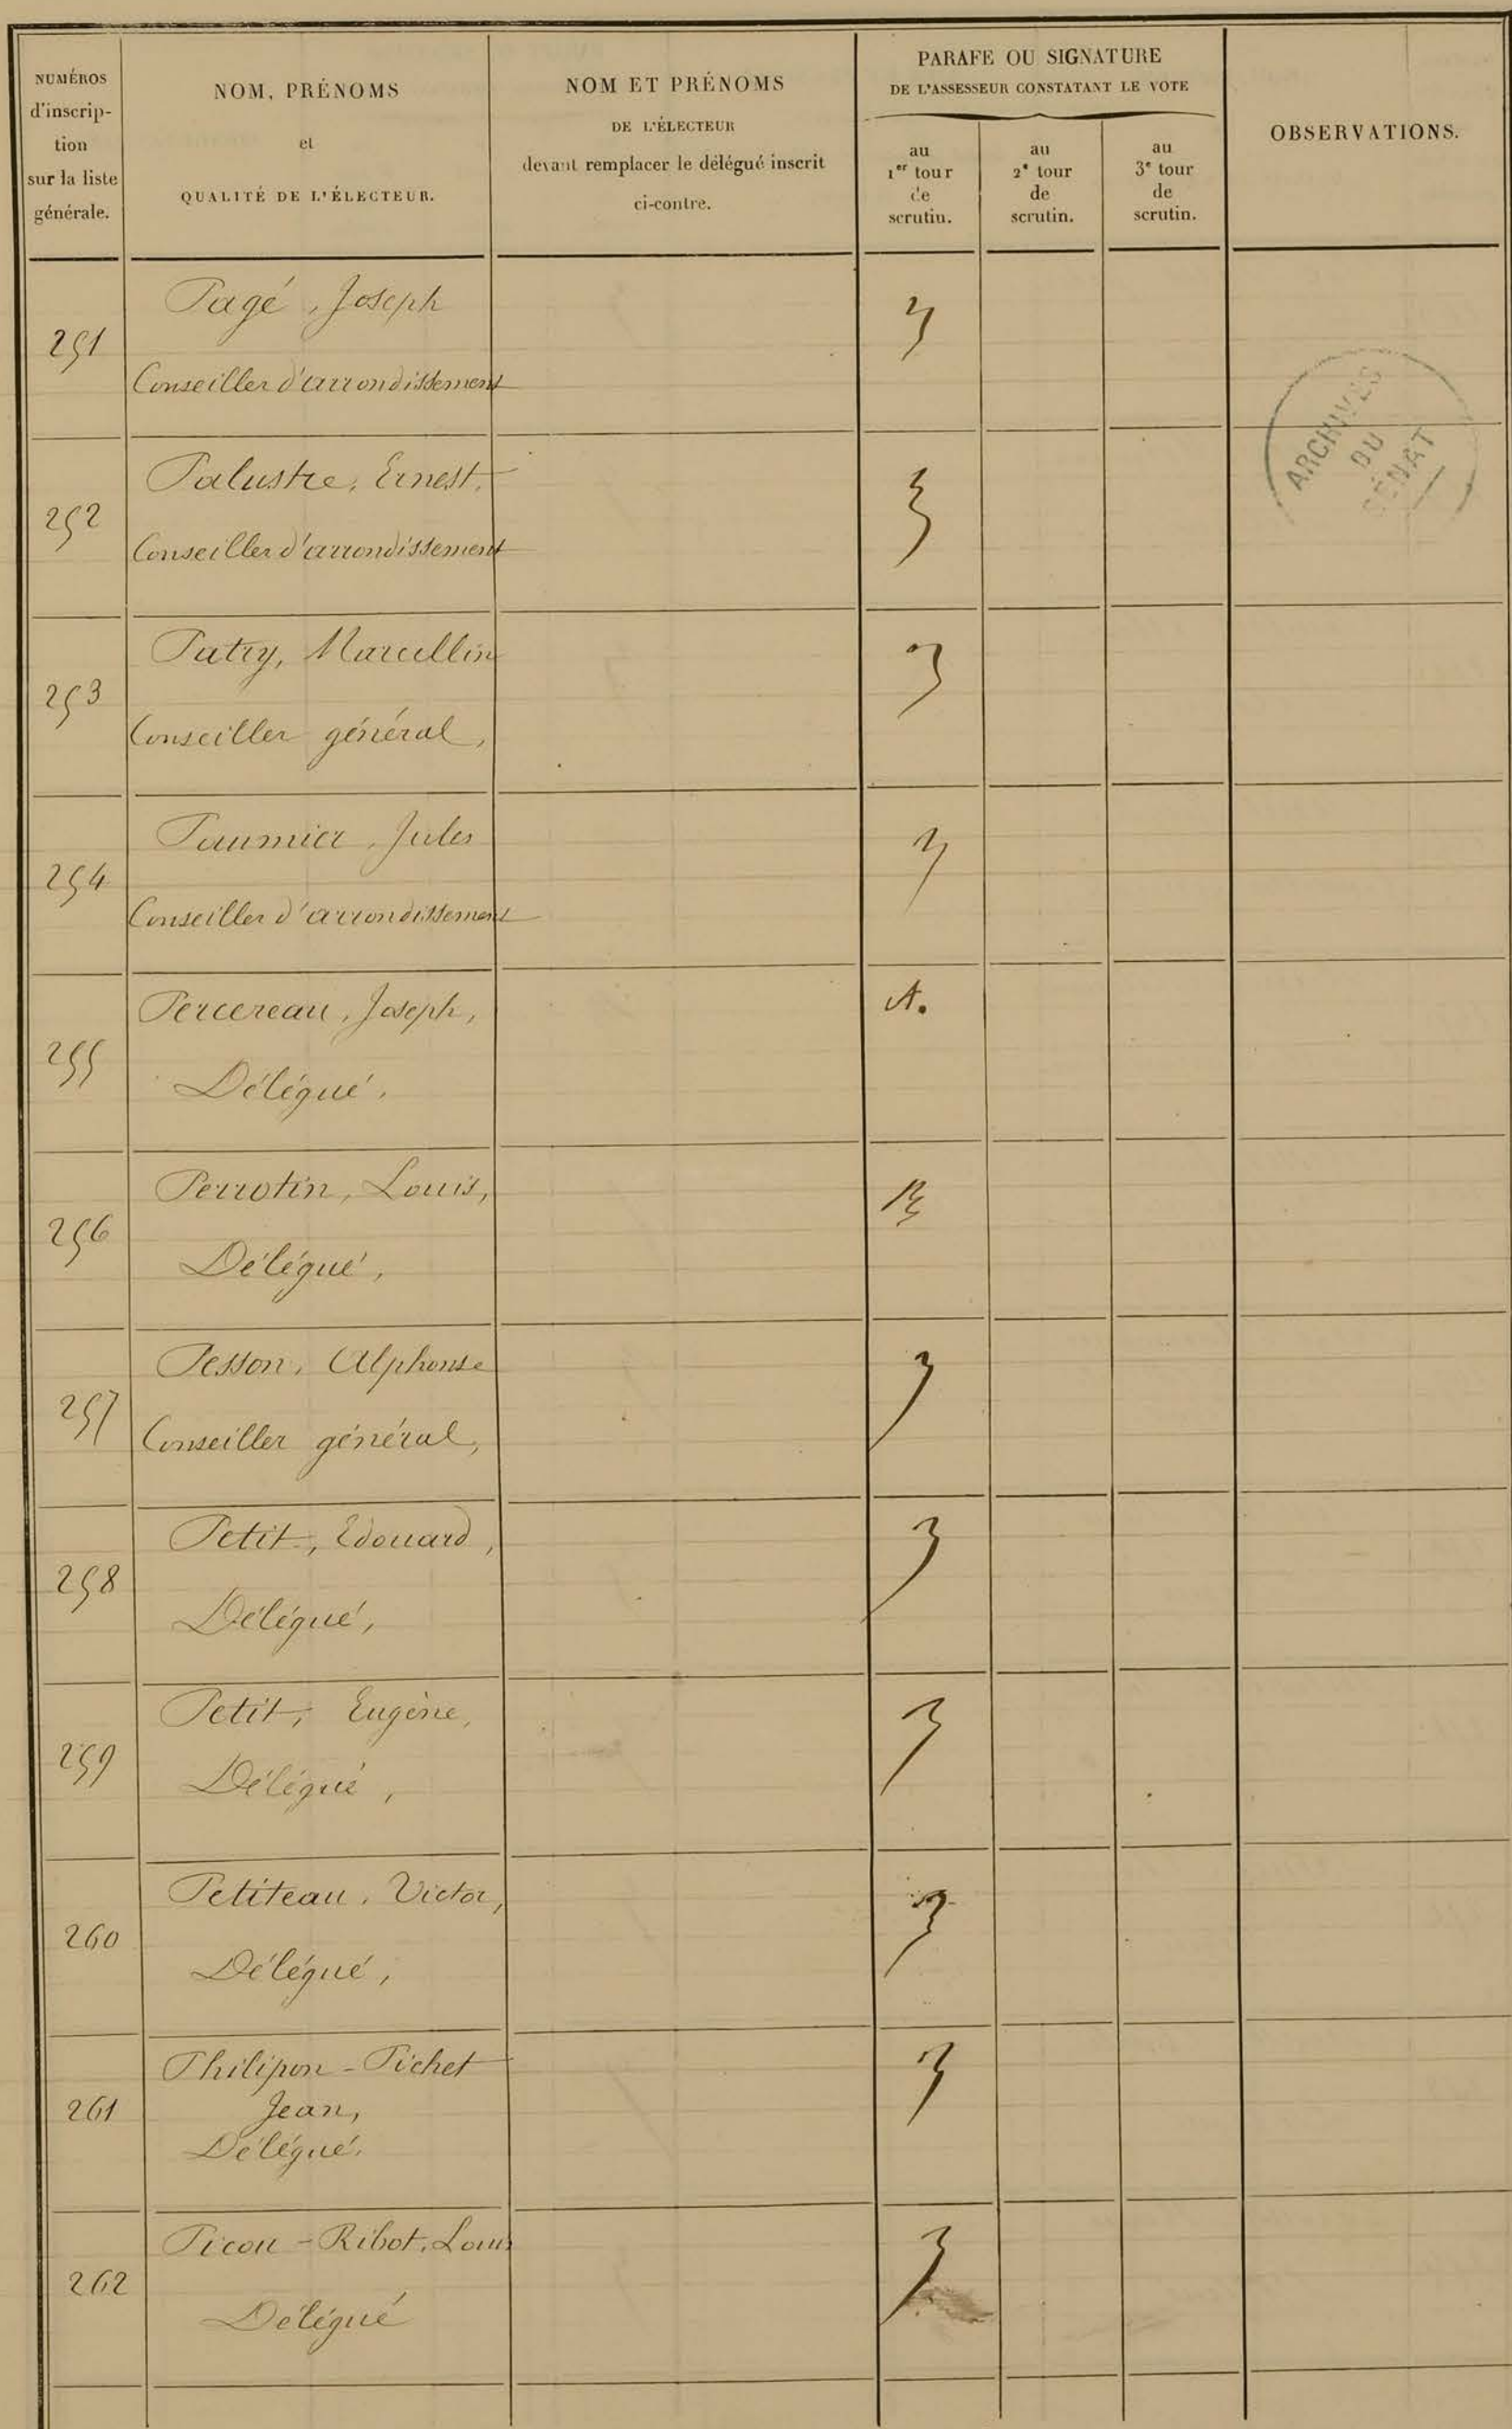 NUMÉROS
d'inscrip-
tion
sur la liste
générale.
NOM, PRÉNOMS
et
QUALITÉ DE L'ÉLECTEUR.
NOM ET PRÉNOMS
DE L'ÉLECTEUR
devant remplacer le délégué inscrit
ci-contre.
PARAFE OU SIGNATURE
DE L'ASSESSEUR CONSTATANT LE VOTE
au
1er tour
de
scrutin.
au
2e tour
de
scrutin.
au
3e tour
de
scrutin.
OBSERVATIONS.
251
Pagé, Joseph
Conseiller d'arrondissement
ARCHIVES
DU
SÉNAT
252
Palustre, Ernest,
Conseiller d'arrondissement
253
Patry, Marcellin
Conseiller général,
254
Paumier, Jules
Conseiller d'arrondissement
255
Percereau, Joseph,
A.
Délégué,
256
Perrotin, Louis,
Délégué,
257
Pesson, Alphonse
Conseiller général,
258
Petit, Edouard,
Délégué,
259
Petit, Eugène,
Délégué,
260
Petiteau, Victor,
Délégué,
261
Philipon-Pichet
Jean,
Délégué.
262
Picou-Ribot, Louis
Délégué